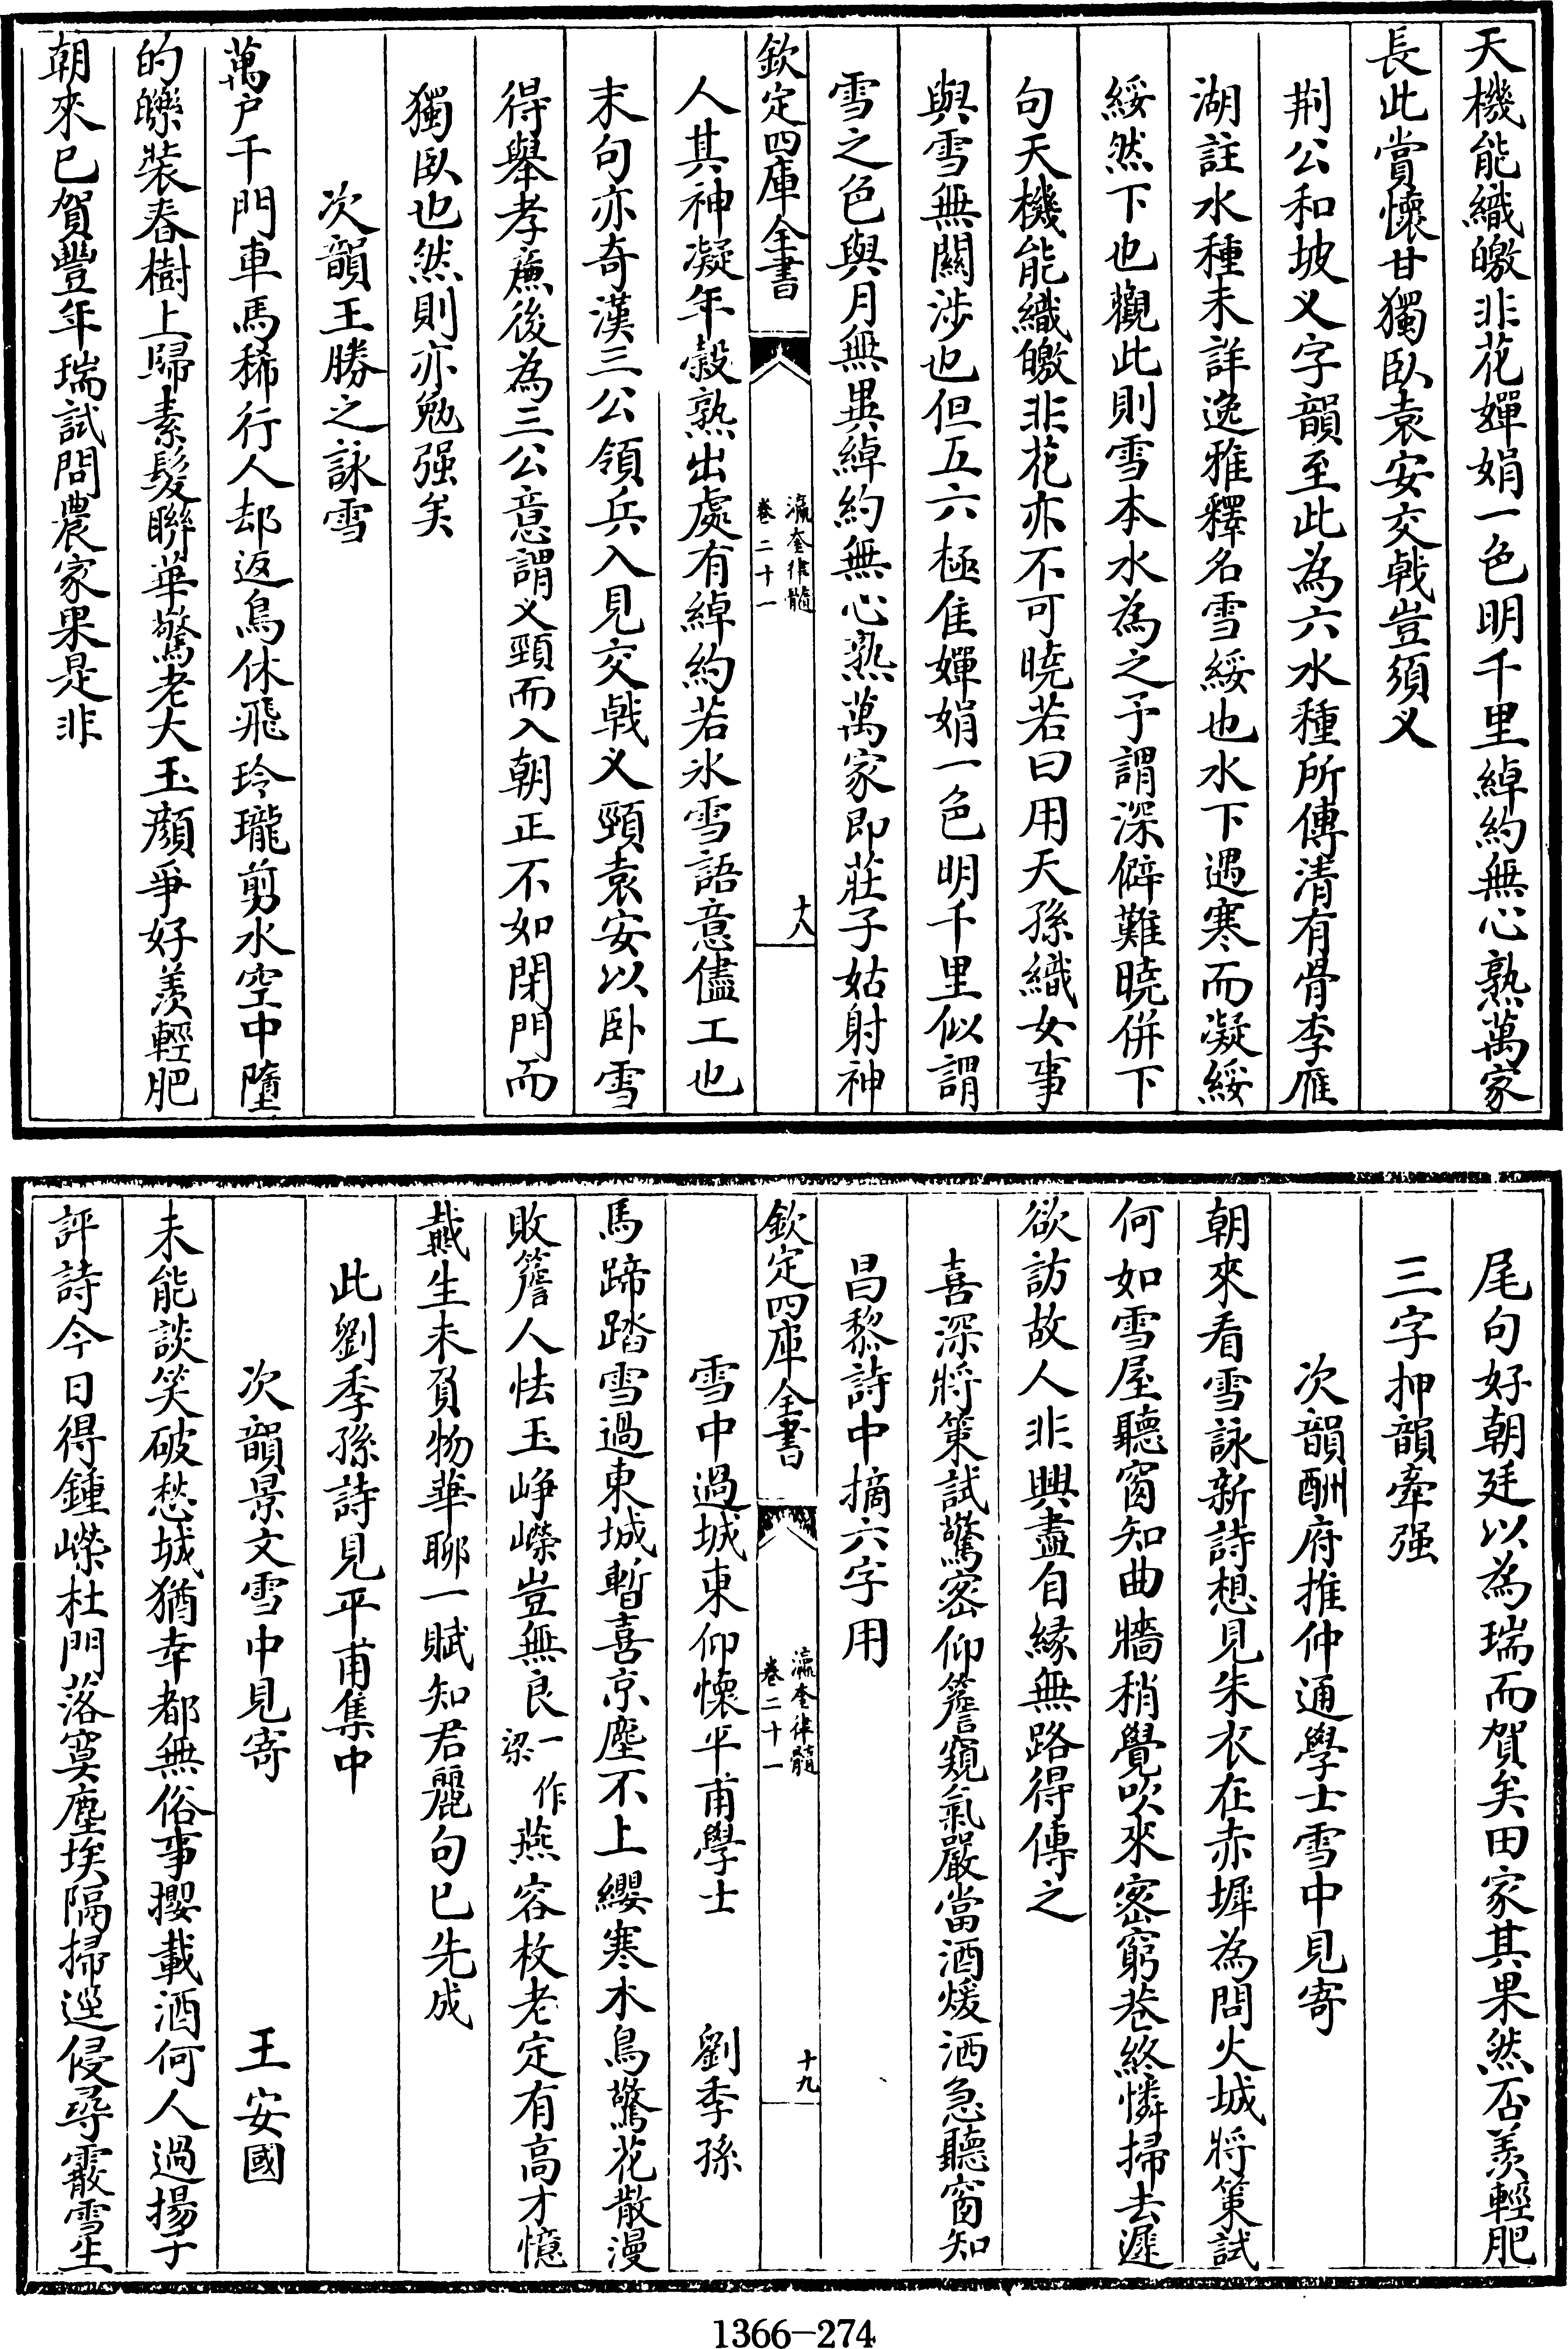 天機能織皦非花嬋娟一色明千里綽約無心熟萬家
長此賞懷甘獨臥袁安交戟豈須义
荆公和坡义字韻至此為六水種所傳清有骨李雁
湖註水種未詳逸雅釋名雪綏也水下遇寒而凝綏
綏然下也觀此則雪本水為之予謂深僻難曉併下
句天機能織皦非花亦不可曉若曰用天孫織女事
與雪無關涉也但五六極佳嬋娟一色明千里似謂
雪之色與月無異綽約無心熟萬家即莊子姑射神
欽定四庫全書
瀛奎律髓
卷二十一
十八
人其神凝年榖熟出處有綽約若氷雪語意儘工也
末句亦奇漢三公領兵入見交戟义頸袁安以卧雪
得舉孝亷後為三公意謂义頸而入朝正不如閉門而
獨臥也然則亦勉强矣
次韻王勝之詠雪
萬户千門車馬稀行人却返鳥休飛玲瓏剪水空中墮
的皪裝春樹上歸素髮聨華驚老大玉顔爭好羨輕肥
朝來已賀豐年瑞試問農家果是非
尾句好朝廷以為瑞而賀矣田家其果然否羨輕肥
三字押韻牽强
次韻酬府推仲通學士雪中見寄
朝來看雪詠新詩想見朱衣在赤墀為問火城將策試
何如雪屋聽窗知曲牆稍覺吹來密窮巷終憐掃去遲
欲訪故人非興盡自縁無路得傳之
喜深將策試驚密仰簷窺氣嚴當酒煖洒急聽窗知
昌黎詩中摘六字用
欽定四庫全書
瀛奎律髓
卷二十一
十九
雪中過城東仰懐平甫學士　劉季孫
馬蹄踏雪過東城暫喜京塵不上纓寒木鳥驚花散漫
敗簷人怯玉峥嶸豈無良一作梁燕容枚老定有高才憶
戴生未負物華聊一賦知君麗句已先成
此劉季孫詩見平甫集中
次韻景文雪中見寄　王安國
未能談笑破愁城猶幸都無俗事攖載酒何人過揚子
評詩今日得鍾嶸杜門落寞塵埃隔掃逕侵尋霰雪生
1366-274